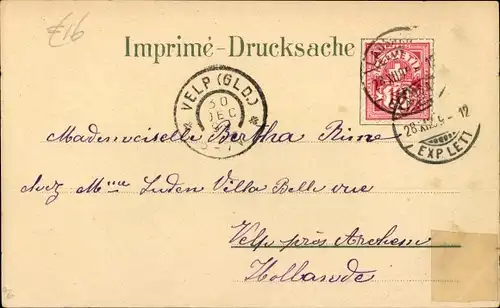 £16
Imprimé-Drucksache
HELVETIA
VELP (GLD.)
30
DEC
28.XII.99-12
EXP. LETT.
Mademoiselle Bertha
chez Mme Luden Villa Belle vue
Velp près Arnhem
Hollande